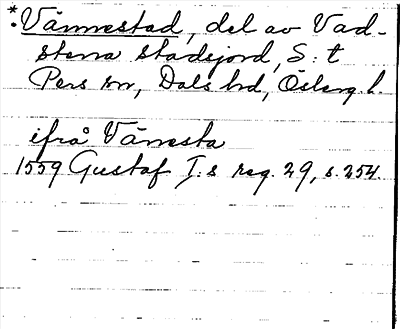 *: Vännestad, del av Vad-
stena stadsjord, S:t
Pers sn, Dals hd, Österg. l.
ifrå Vännesta
1559 Gustaf I:s reg. 29, s. 254.